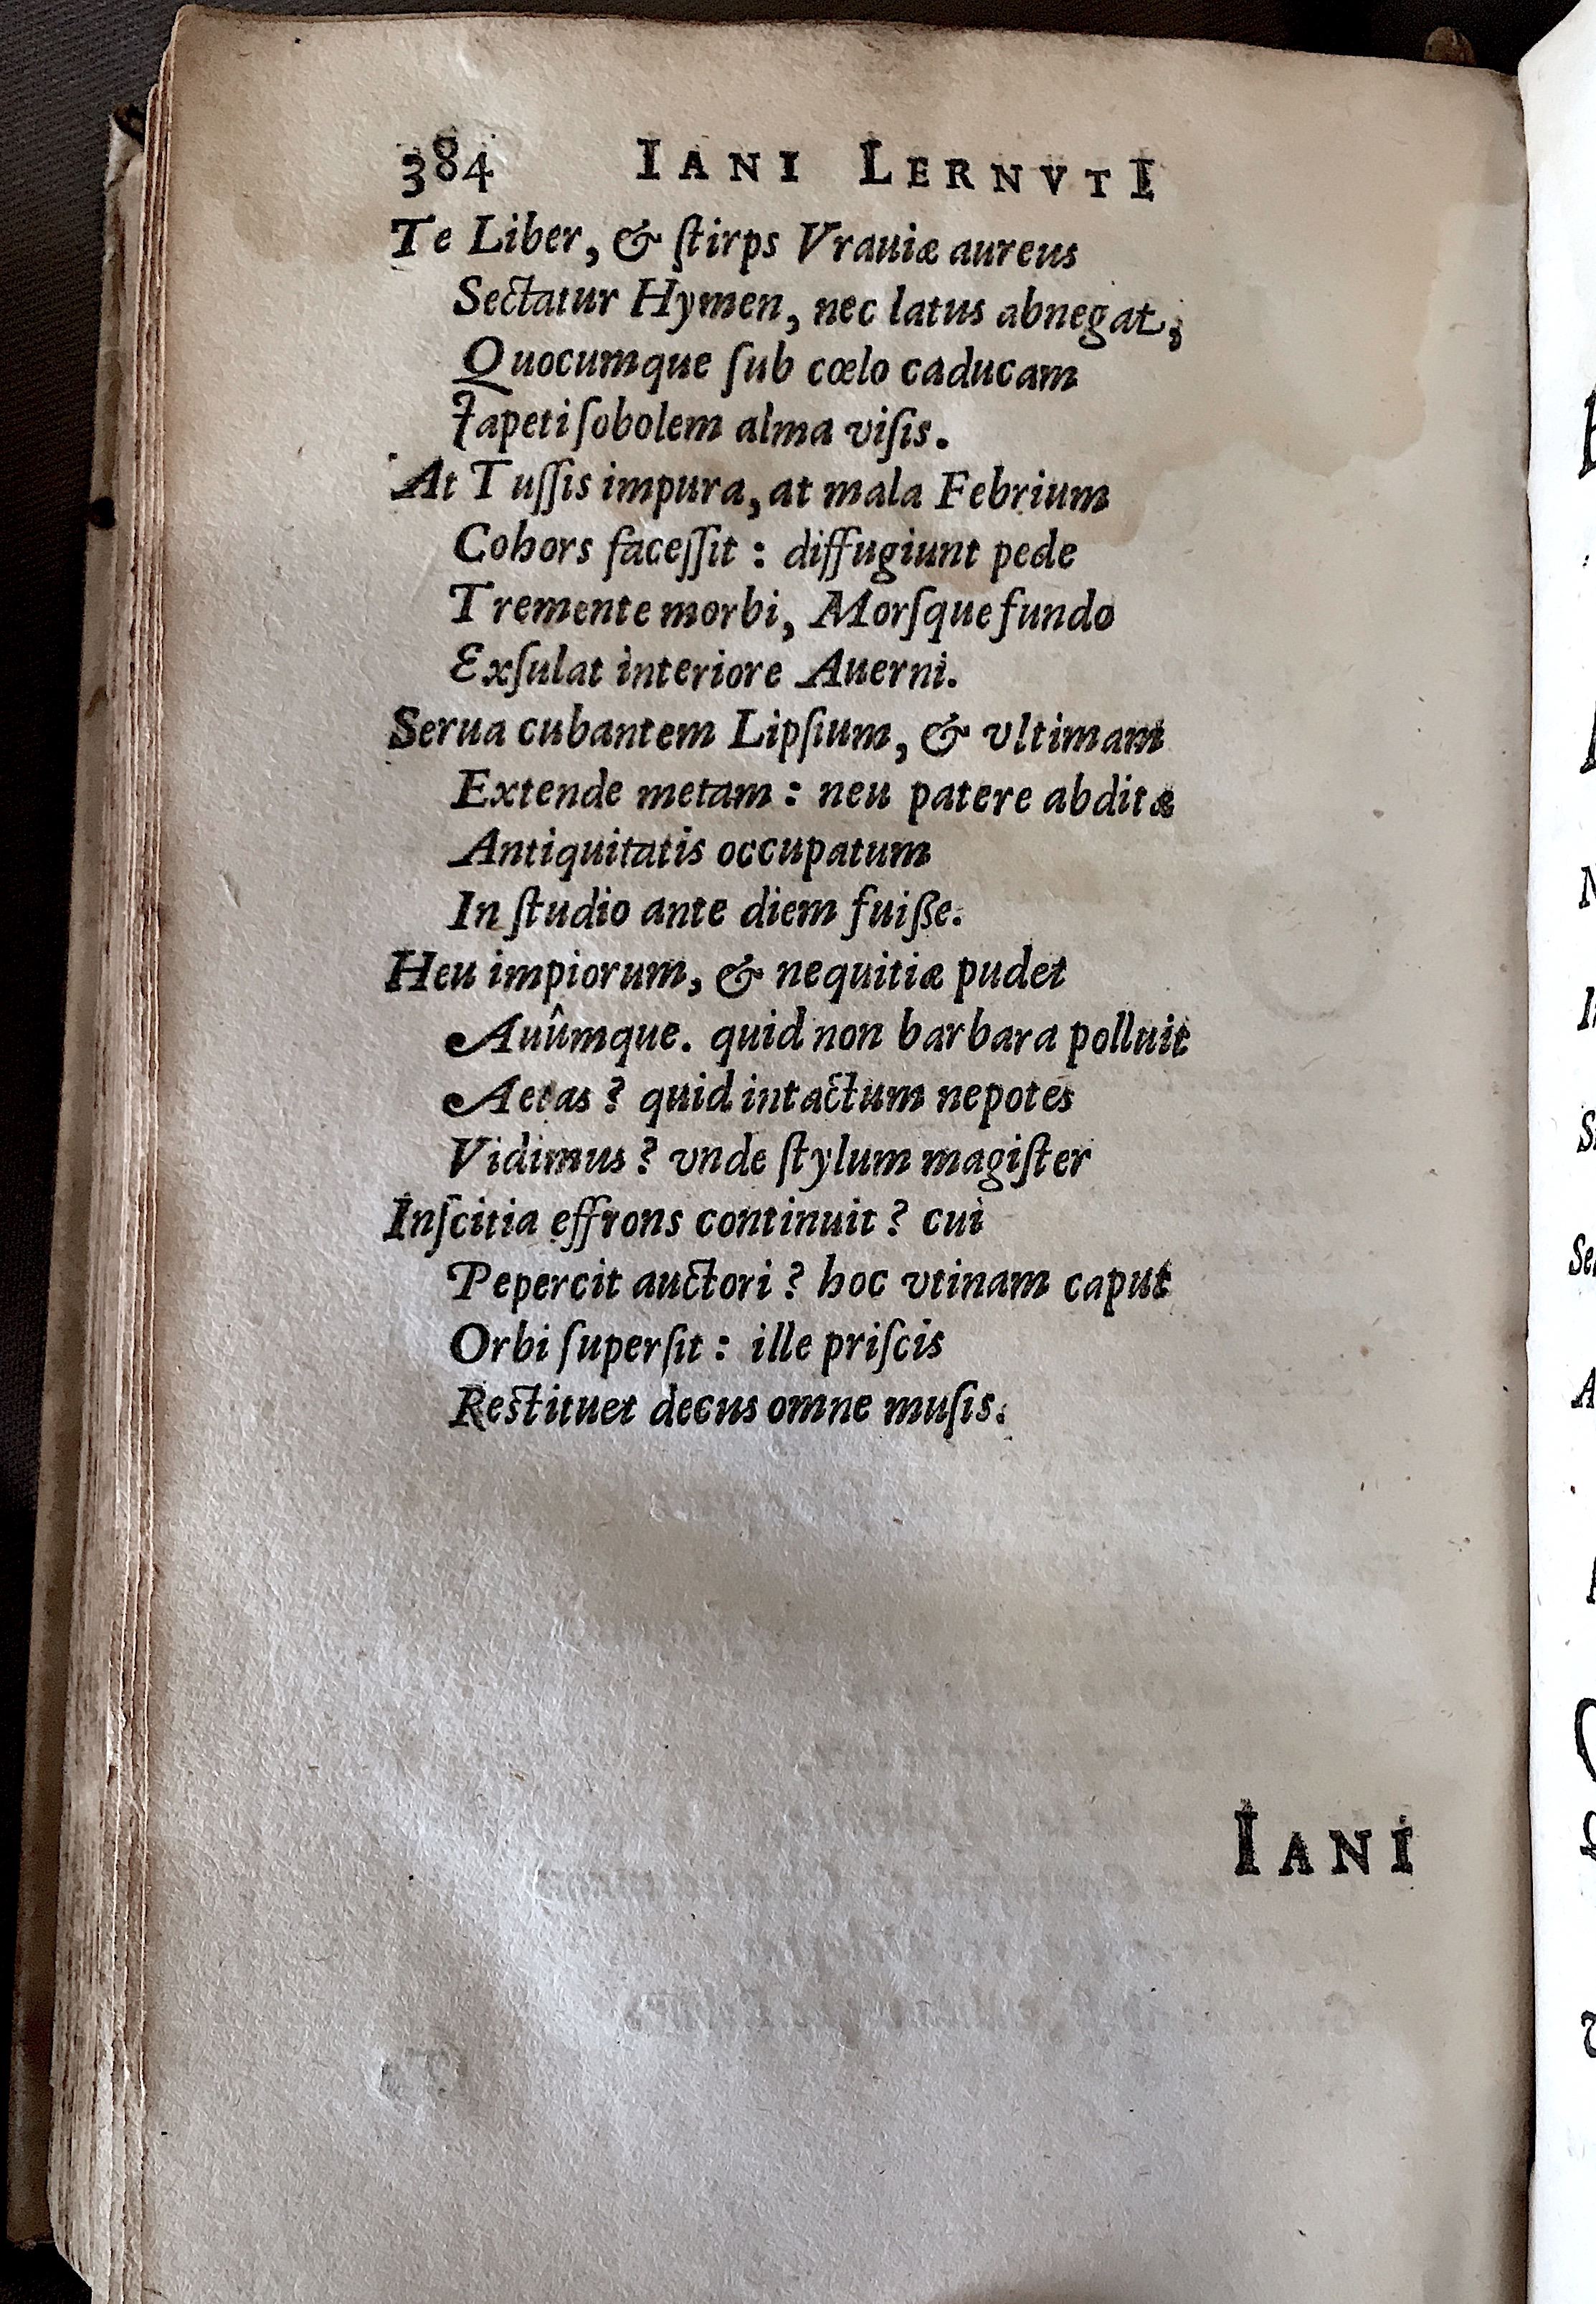 384 IANI LERNVTI
Te Liber, & ſtirps Vrauiæ aureus
Sectatur Hymen, nec latus abnegat,
Quocumque ſub cœlo caducam
Iapeti ſobolem alma viſis.
At Tuſſis impura, at mala Febrium
Cohors faceſſit : diffugiunt pede
Tremente morbi, Morſque fundo
Exſulat interiore Auerni.
Serua cubantem Lipſium, & vltimam
Extende metam : neu patere abditæ
Antiquitatis occupatum
In ſtudio ante diem fuiße.
Heu impiorum, & nequitiæ pudet
Auûmque. quid non barbara polluit
Aetas ? quid intactum nepotes
Vidimus ? vnde ſtylum magiſter
Inſcitia effrons continuit ? cui
Pepercit auctori ? hoc vtinam caput
Orbi ſuperſit : ille priſcis
Reſtituet decus omne muſis.
IANI